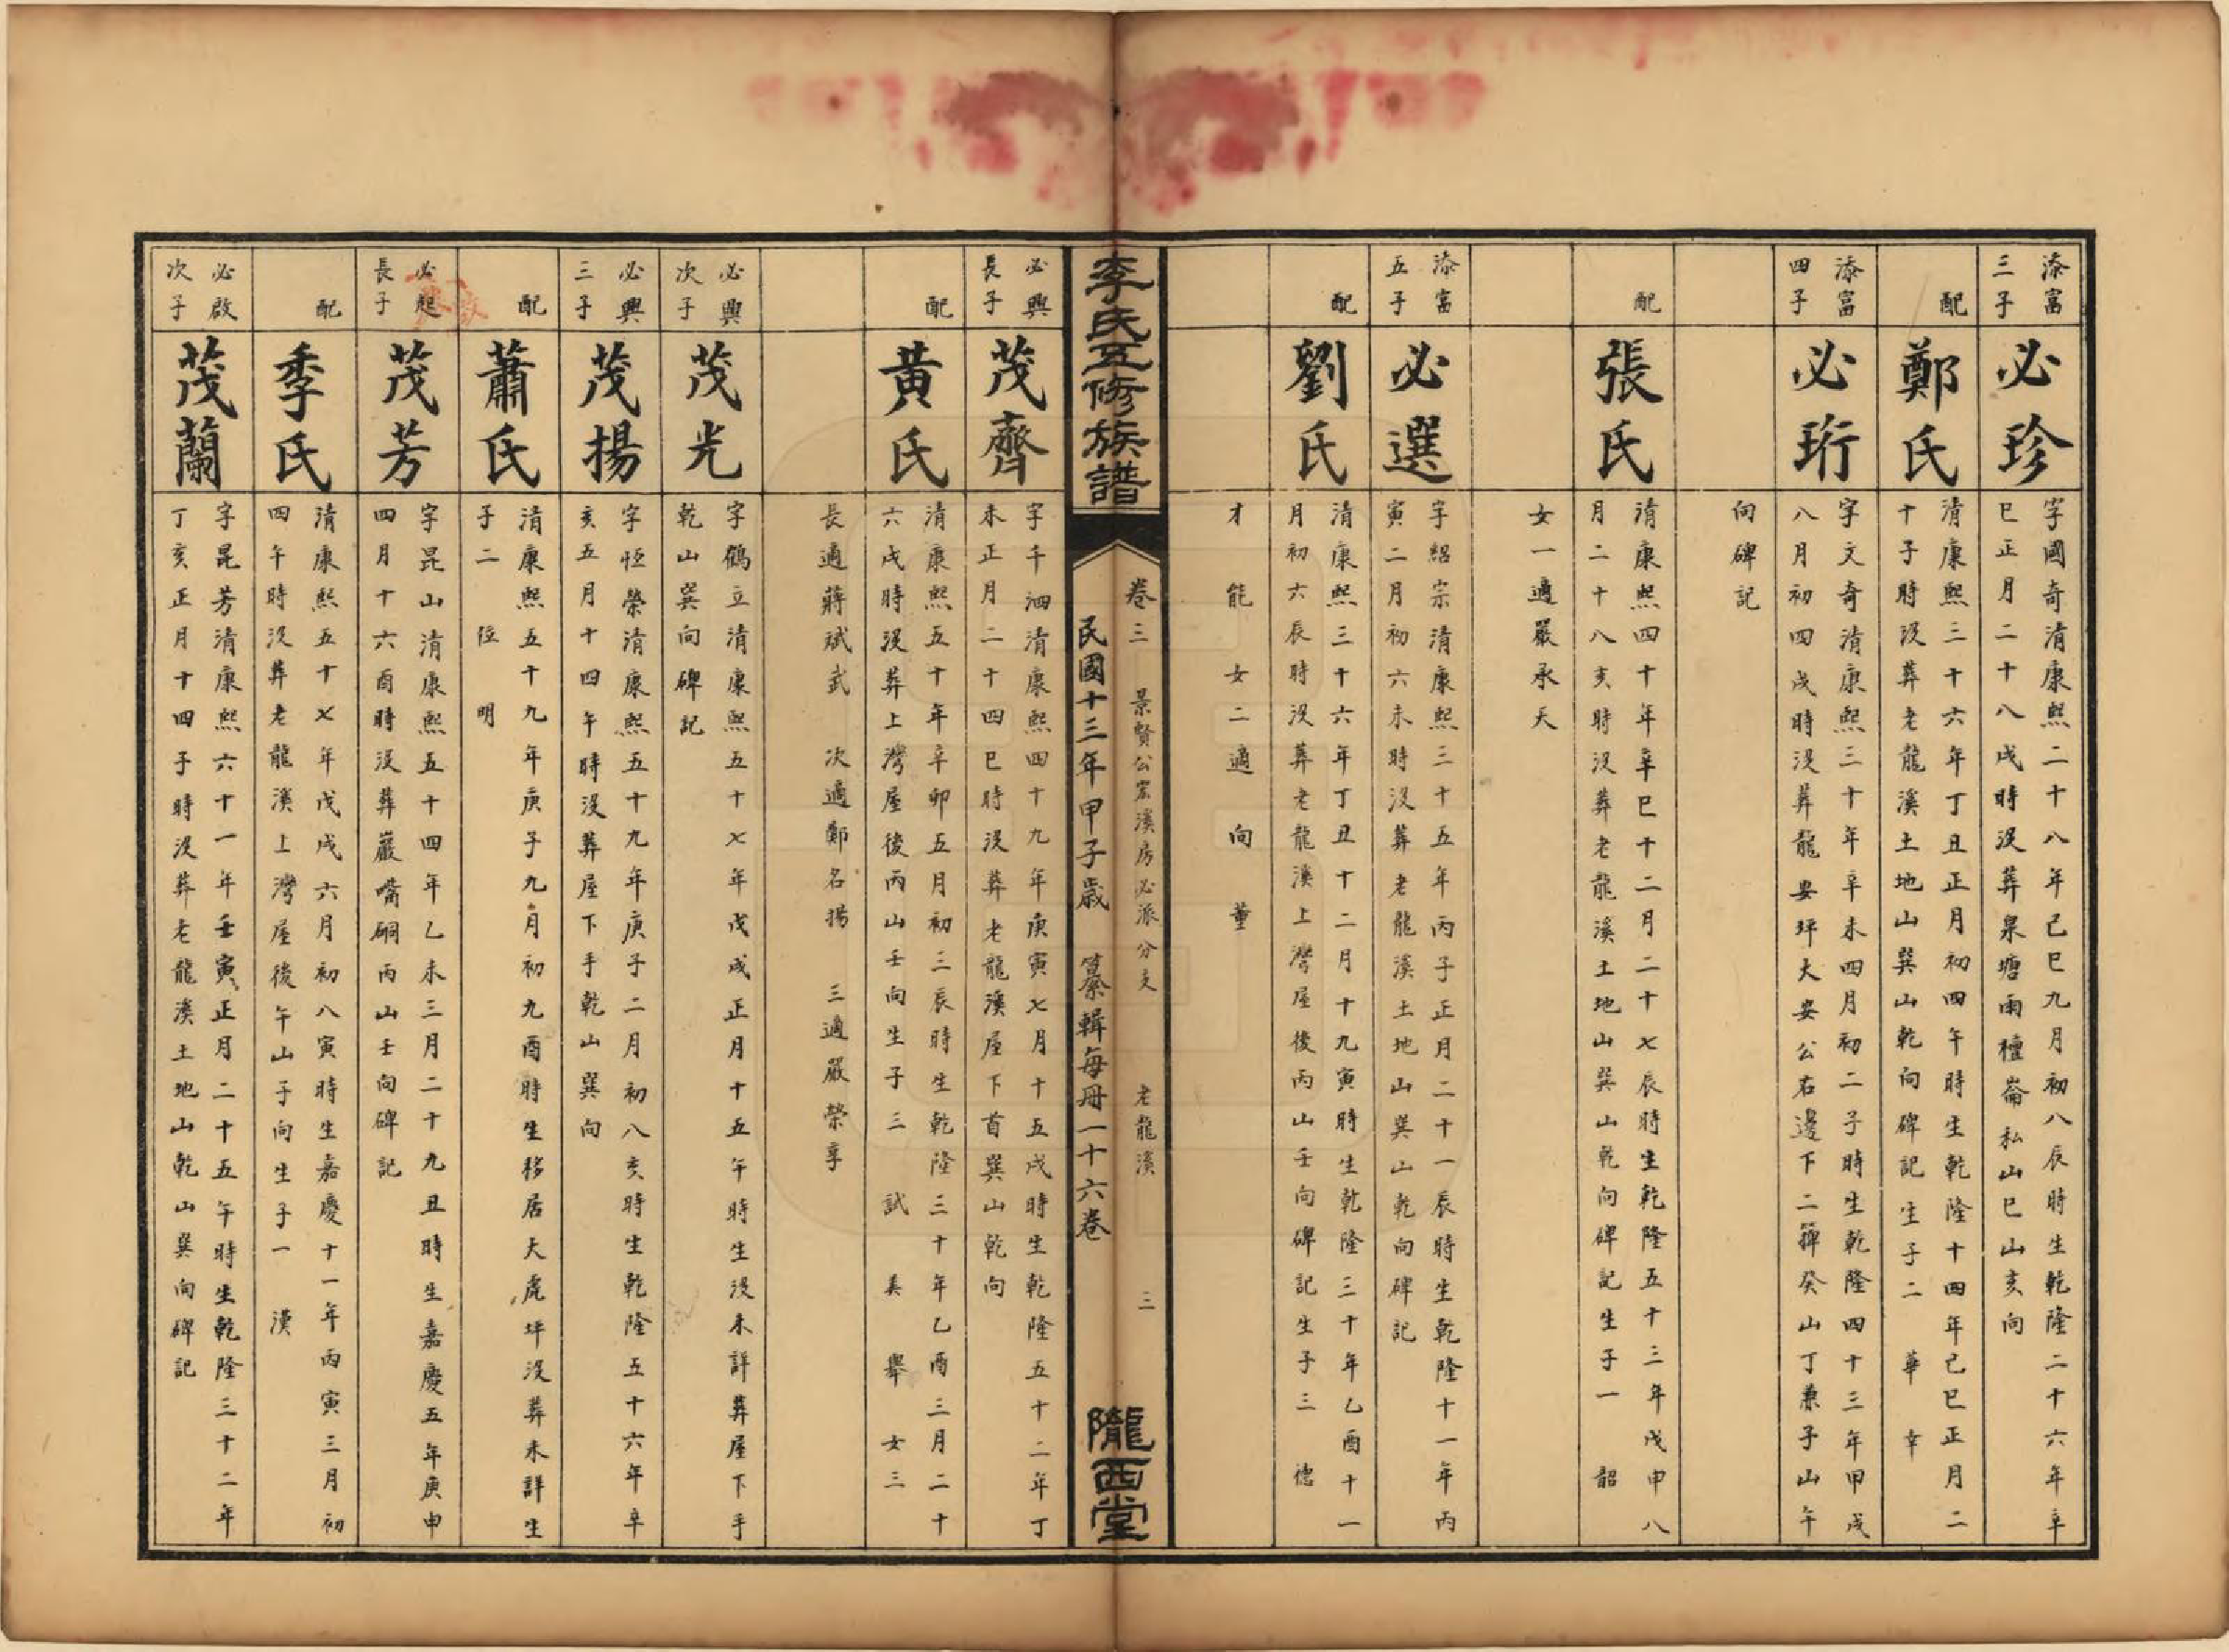 添富
三子
必珍
字國奇清康熙二十八年己巳九月初八辰時生乾隆二十六年辛
巳正月二十八戌時沒葬泉塘雨檀崙私山巳山亥向
配
鄭氏
清康熙三十六年丁丑正月初四午時生乾隆十四年己巳正月二
十子時沒葬老龍溪土地山巽山乾向碑記生子二 華 幸
添富
四子
必珩
字文奇清康熙三十年辛未四月初二子時生乾隆四十三年甲戌
八月初四戌時沒葬龍安坪大安公右邊下二箳癸山丁兼子山午
向碑記
配
張氏
清康熙四十年辛巳十二月二十七辰時生乾隆五十三年戊申八
月二十八亥時沒葬老龍溪土地山巽山乾向碑記生子一 韶
女一適嚴承天
添富
五子
必選
字紹宗清康熙三十五年丙子正月二十一辰時生乾隆十一年丙
寅二月初六未時沒葬老龍溪土地山巽山乾向碑記
配
劉氏
清康熙三十六年丁丑十二月十九寅時生乾隆三十年乙酉十一
月初六辰時沒葬老龍溪上灣屋後丙山壬向碑記生子三 德
才 能 女二適 向 董
李氏五修族譜
卷三 景賢公宗溪房必派分支 老龍溪 三
民國十三年甲子歲 纂輯每册一十六卷
隴西堂
必興
長子
茂齊
字千泗清康熙四十九年庚寅七月十五戌時生乾隆五十二年丁
未正月二十四巳時沒葬老龍溪屋下首巽山乾向
配
黄氏
清康熙五十年辛卯五月初三辰時生乾隆三十年乙酉三月二十
六戌時沒葬上灣屋後丙山壬向生子三 試 美 舉 女三
長適蔣斌武 次適鄭名揚 三適嚴榮享
必興
次子
茂光
字鶴立清康熙五十七年戊戌正月十五午時生沒未詳葬屋下手
乾山巽向碑記
必興
三子
茂揚
字恒榮清康熙五十九年庚子二月初八亥時生乾隆五十六年辛
亥五月十四午時沒葬屋下手乾山巽向
配
蕭氏
清康熙五十九年庚子九月初九酉時生移居大虎坪沒葬未詳生
子二 陞 明
必起
長子
茂芳
字昆山清康熙五十四年乙未三月二十九丑時生嘉慶五年庚申
四月十六酉時沒葬嚴嘴硐丙山壬向碑記
配
季氏
清康熙五十七年戊戌六月初八寅時生嘉慶十一年丙寅三月初
四午時沒葬老龍溪上灣屋後午山子向生子一 漢
必啟
次子
茂蘭
字昆芳清康熙六十一年壬寅正月二十五午時生乾隆三十二年
丁亥正月十四子時沒葬老龍溪土地山乾山巽向碑記